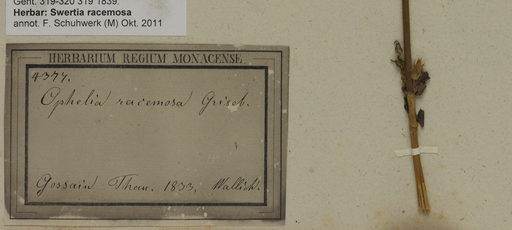 Gent. 319-320 319 1839.
Herbar: Swertia racemosa
annot. F. Schuhwerk (M) Okt. 2011
HERBARIUM REGIUM MONACENSE.
4377.
Ophelia racemosa Griseb.
Gossain Than. 1833, Wallich.